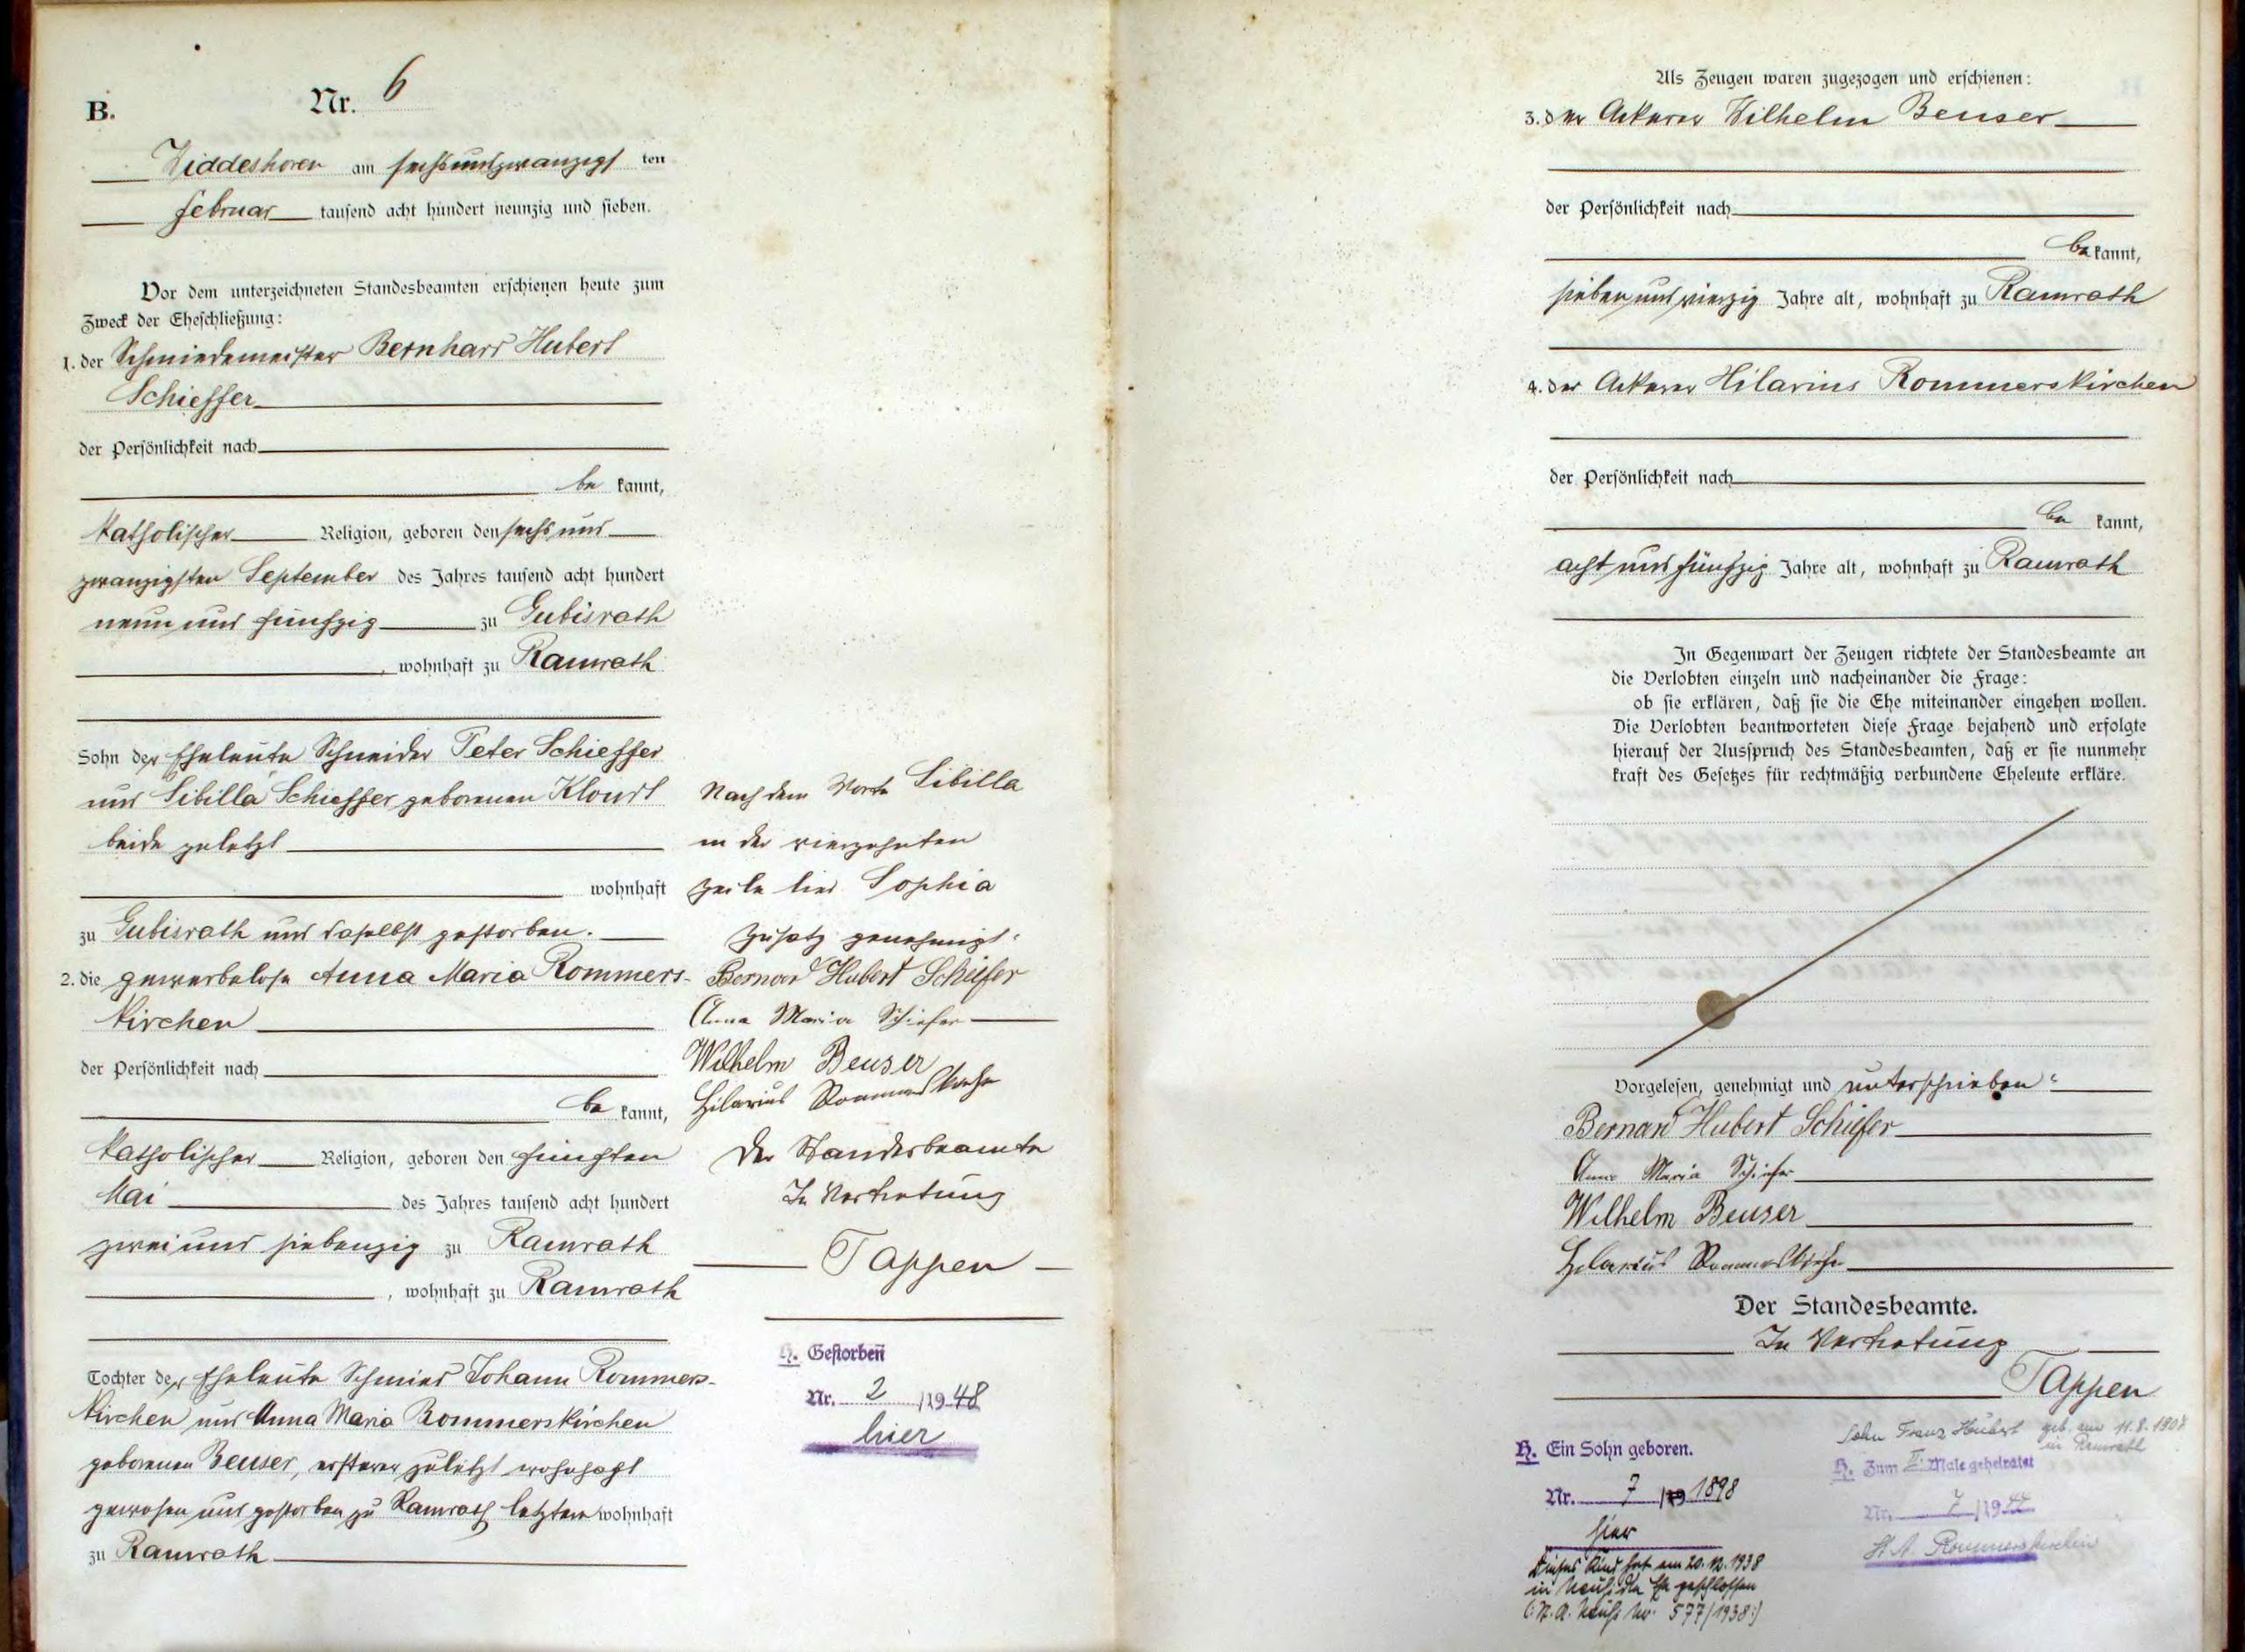 B.
Nr. 6
Widdeshoven am sechsundzwanzigs ten
Februar tausend acht hundert neunzig und sieben.
Vor dem unterzeichneten Standesbeamten erschienen heute zum
Zweck der Eheschließung:
1. der Schmiedemeister Bernhard Hubert
Schieffer
der Persönlichkeit nach
be kannt,
katholischer Religion, geboren den sechs und
zwanzigsten September des Jahres tausend acht hundert
neun und fünfzig zu Gubisrath
, wohnhaft zu Ramrath
Sohn der Eheleute Schneider Peter Schieffer
und Sibilla Schieffer geborenen Kloudt
beide zuletzt
wohnhaft
zu Gubisrath und daselbst gestorben.
2. die gewerbelose Anna Maria Rommers-
kirchen
der Persönlichkeit nach
be kannt,
katholischer Religion, geboren den fünften
Mai des Jahres tausend acht hundert
zwei und siebenzig zu Ramrath
, wohnhaft zu Ramrath
Tochter der Eheleute Schmied Johann Rommers-
kirchen und Anna Maria Rommerskirchen
geborenen Beuser, ersterer zuletzt wohnhaft
gewesen und gestorben zu Ramrath letztere wohnhaft
zu Ramrath
Nach dem Worte Sibilla
in der vierzehnten
Zeile lies Sophia
Zusatz genehmigt:
Bernard Hubert Schiefer
Anna Maria Schiefer
Wilhelm Beuser
Hilarius Rommerskirchen
Der Standesbeamte
In Vertretung
Tappen
H. Gestorben
Nr. 2 /1948
hier
Als Zeugen waren zugezogen und erschienen:
3. der Ackerer Wilhelm Beuser
der Persönlichkeit nach
be kannt,
sieben und vierzig Jahre alt, wohnhaft zu Ramrath
4. der Ackerer Hilarius Rommerskirchen
der Persönlichkeit nach
be kannt,
acht und fünfzig Jahre alt, wohnhaft zu Ramrath
In Gegenwart der Zeugen richtete der Standesbeamte an
die Verlobten einzeln und nacheinander die Frage:
ob sie erklären, daß sie die Ehe miteinander eingehen wollen.
Die Verlobten beantworteten diese Frage bejahend und erfolgte
hierauf der Ausspruch des Standesbeamten, daß er sie nunmehr
kraft des Gesetzes für rechtmäßig verbundene Eheleute erkläre.
Vorgelesen, genehmigt und unterschrieben:
Bernard Hubert Schiefer
Anna Maria Schiefer
Wilhelm Beuser
Hilarius Rommerskirchen
Der Standesbeamte.
In Vertretung
Tappen
H. Ein Sohn geboren.
Nr. 7 /19 1898
hier
Dieses Kind hat am 20.12.1938
in Neuß die Ehe geschlossen
(:St. A. Neuß Nr. 577/1938:)
Sohn Franz Hubert geb. am 11.8.1908
in Ramrath
H. Zum II. Male geheiratet
Nr. 7 /19
St. A. Rommerskirchen